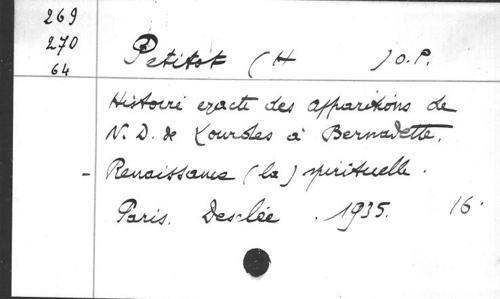 269
270
64
Petitot (H ) O.P.
Histoire exacte des apparitions de
N. D. de Lourdes à Bernadette.
- Renaissance (la) spirituelle.
Paris. Desclée. 1935. 16.